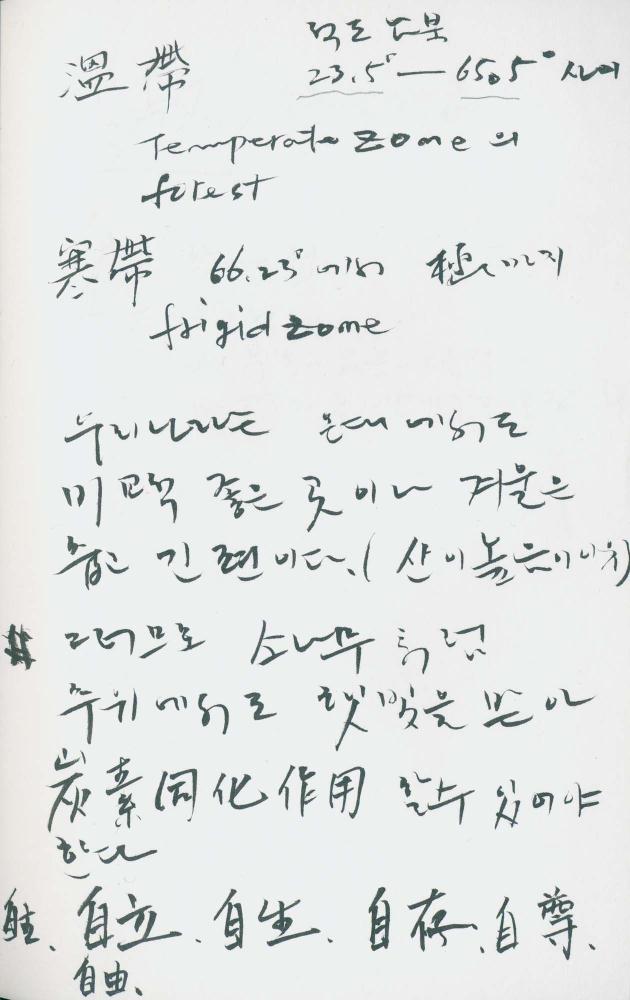 적도 남북
溫帶 23.5° — 65.5° 사이
Temperate zone 의
forest
寒帶 66.25° 에서 極까지
frigid zone
우리나라는 온대에서도
미곡 좋은 곳이나 겨울은
춥고 긴 편이다. (산이 높음이
그러므로 소나무처럼
추위에서도 햇빛을 받아
炭素同化作用 할수 있어야
한다
自主、自立、自生、自存、自尊、
自由、